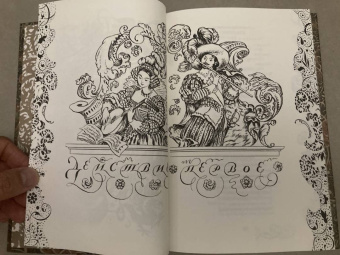 ДЕЙСТВИЕ ПЕРВОЕ